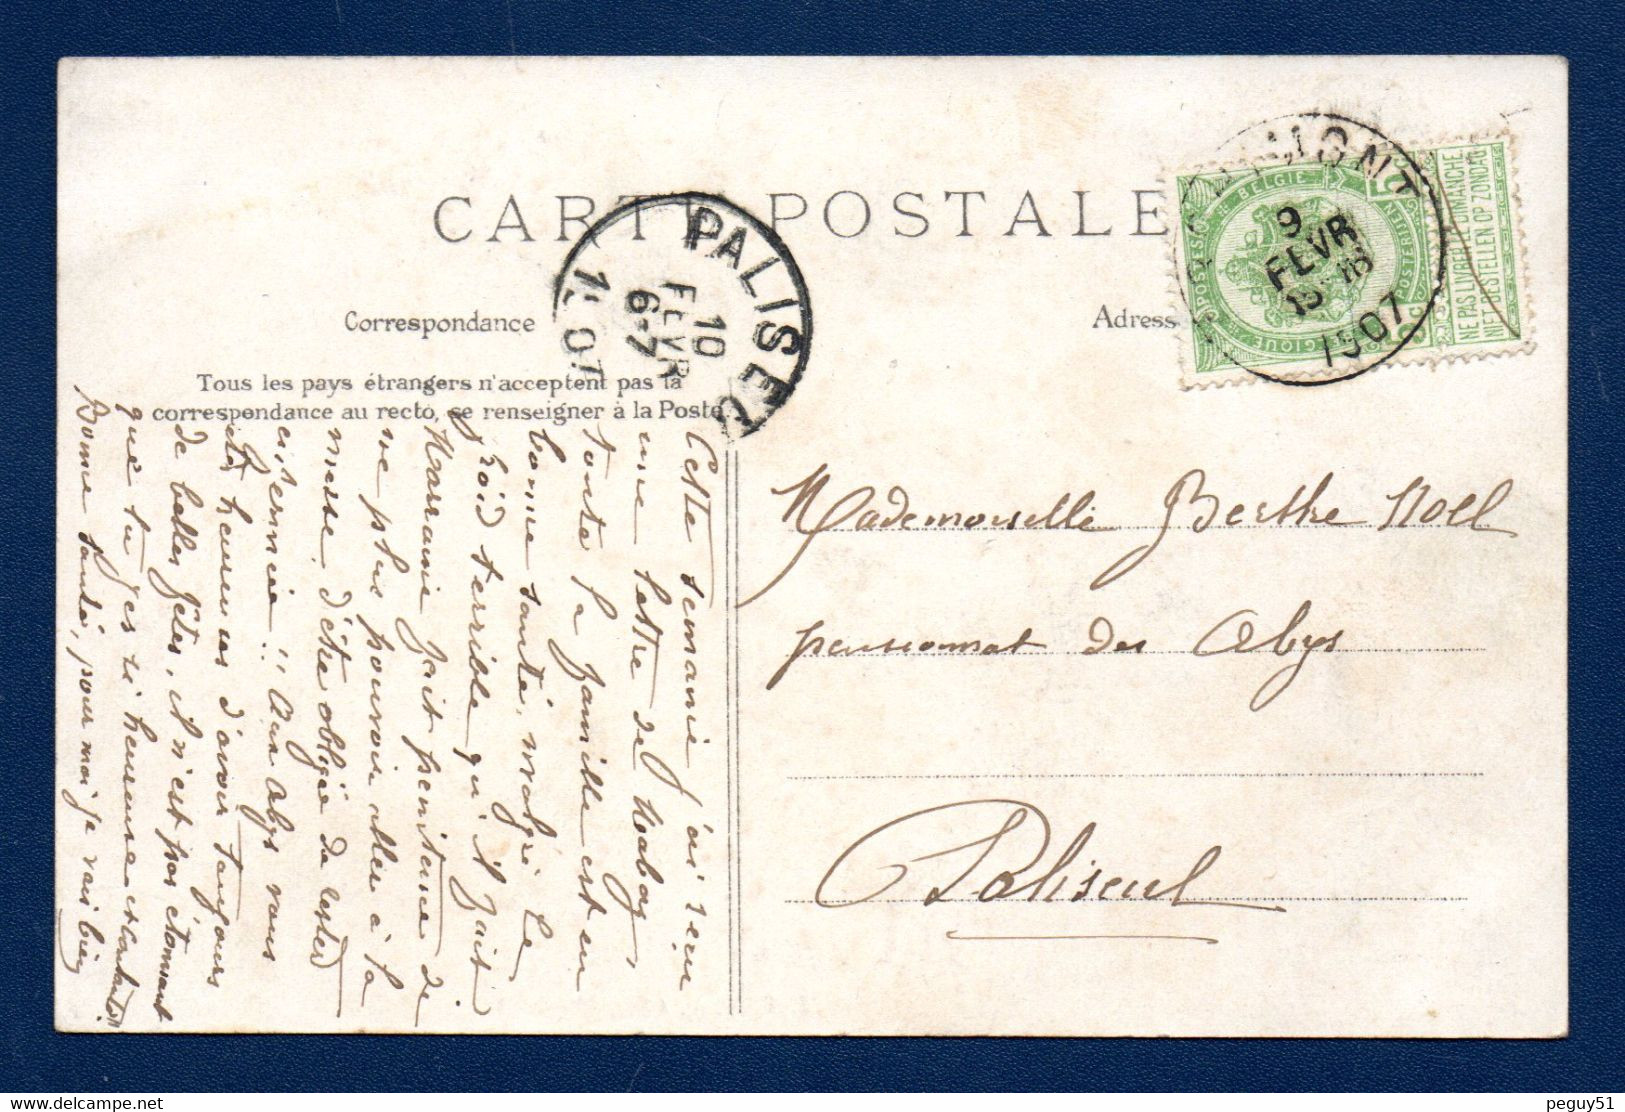 CARTE POSTALE
Correspondance
Adresse
Tous les pays étrangers n'acceptent pas la
correspondance au recto, se renseigner à la Poste.
PALISEUL
10
FEVR
6-7
1907
9
FEVR
15-16
1907
POSTES BELGIE
BELGIQUE
5
NE PAS LIVRER LE DIMANCHE
NIET BESTELLEN OP ZONDAG
Mademoiselle Berthe Noël
pensionnat des Abys
Paliseul
Cette semaine j'ai reçu
une lettre de Habay,
toute la famille est en
bonne santé, malgré le
froid terrible qu'il fait
Marraine fait pénitence de
ne plus pouvoir aller à la
messe, d'être obligée de rester
enfermée!! Aux Abys vous
êtes heureuses d'avoir toujours
de belles fêtes, il n'est pas étonnant
que tu es si heureuse et contente!!
Bonne santé, pour moi je vais bien
peguy51